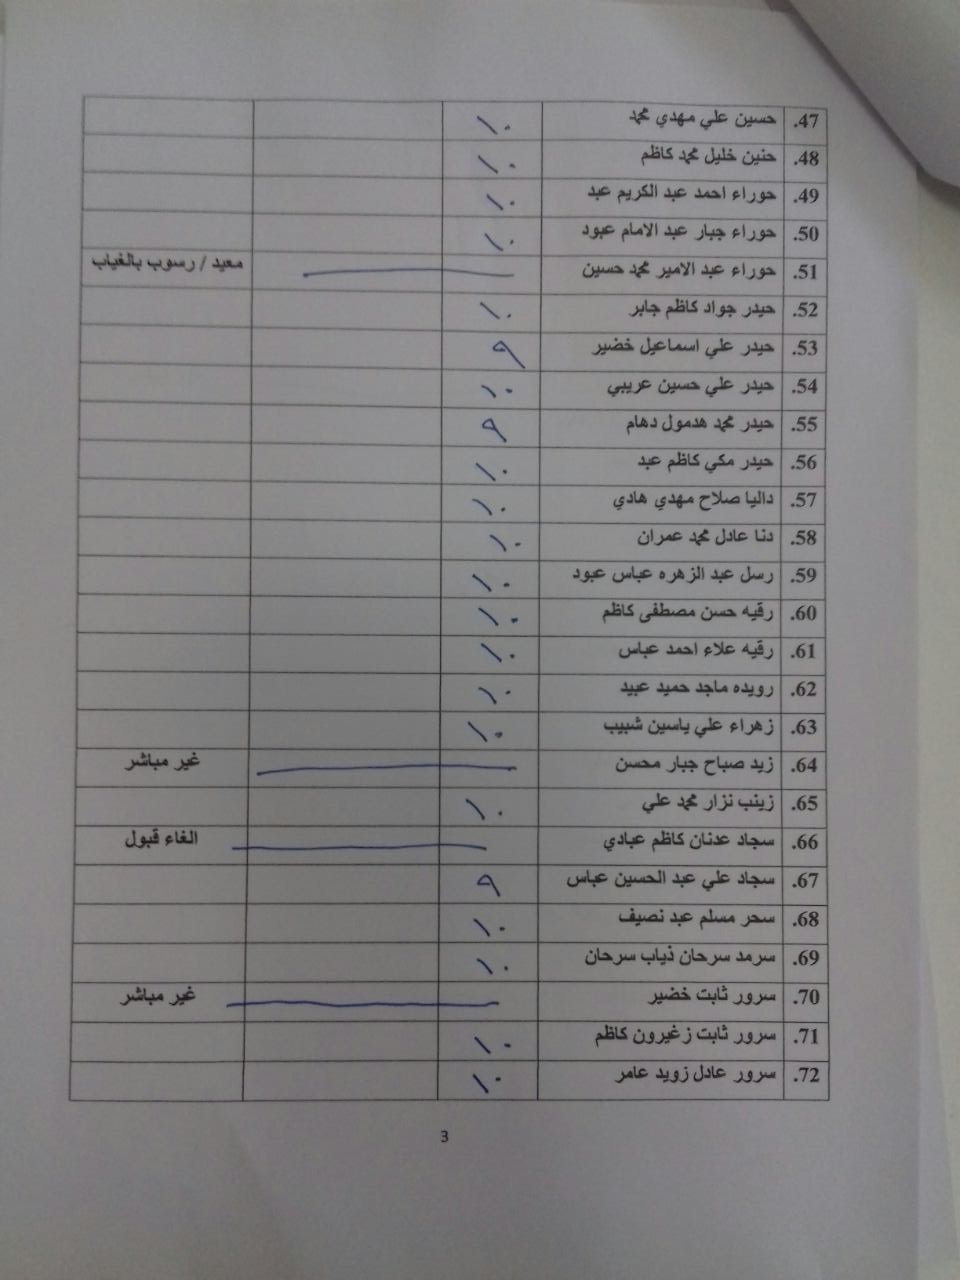 47. حسين علي مهدي محمد ١٠
48. حنين خليل محمد كاظم ١٠
49. حوراء احمد عبد الكريم عبد ١٠
50. حوراء جبار عبد الامام عبود ١٠
51. حوراء عبد الامير محمد حسين معيد / رسوب بالغياب
52. حيدر جواد كاظم جابر ١٠
53. حيدر علي اسماعيل خضير ٩
54. حيدر علي حسين عريبي ١٠
55. حيدر محمد هدمول دهام ٩
56. حيدر مكي كاظم عبد ١٠
57. داليا صلاح مهدي هادي ١٠
58. دنا عادل محمد عمران ١٠
59. رسل عبد الزهره عباس عبود ١٠
60. رقيه حسن مصطفى كاظم ١٠
61. رقيه علاء احمد عباس ١٠
62. رويده ماجد حميد عبيد ١٠
63. زهراء علي ياسين شبيب ١٠
64. زيد صباح جبار محسن غير مباشر
65. زينب نزار محمد علي ١٠
66. سجاد عدنان كاظم عبادي الغاء قبول
67. سجاد علي عبد الحسين عباس ٩
68. سحر مسلم عبد نصيف ١٠
69. سرمد سرحان ذياب سرحان ١٠
70. سرور ثابت خضير غير مباشر
71. سرور ثابت زغيرون كاظم ١٠
72. سرور عادل زويد عامر ١٠
3